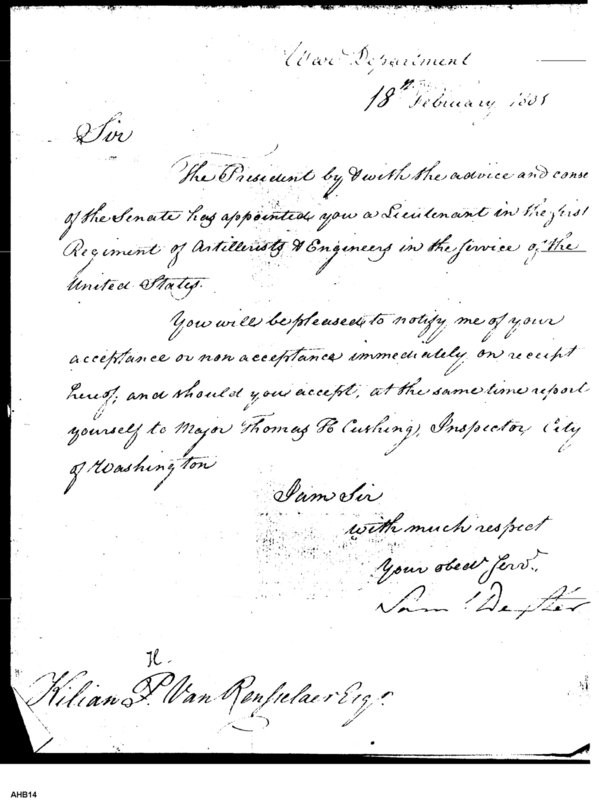 War Department
18th February 1801
Sir
The President by & with the advice and conse
of the Senate has appointed you a Lieutenant in the first
Regiment of Artillerists & Engineers in the service of the
United States.
You will be pleased to notify me of your
acceptance or non acceptance immediately on receipt
hereof; and should you accept, at the same time report
yourself to Major Thomas H Cushing, Inspector, City
of Washington
I am Sir
with much respect
Your obedt Servt.
Saml Dexter
H.
Kilian P. Van Rensselaer Esqr.
AHB14